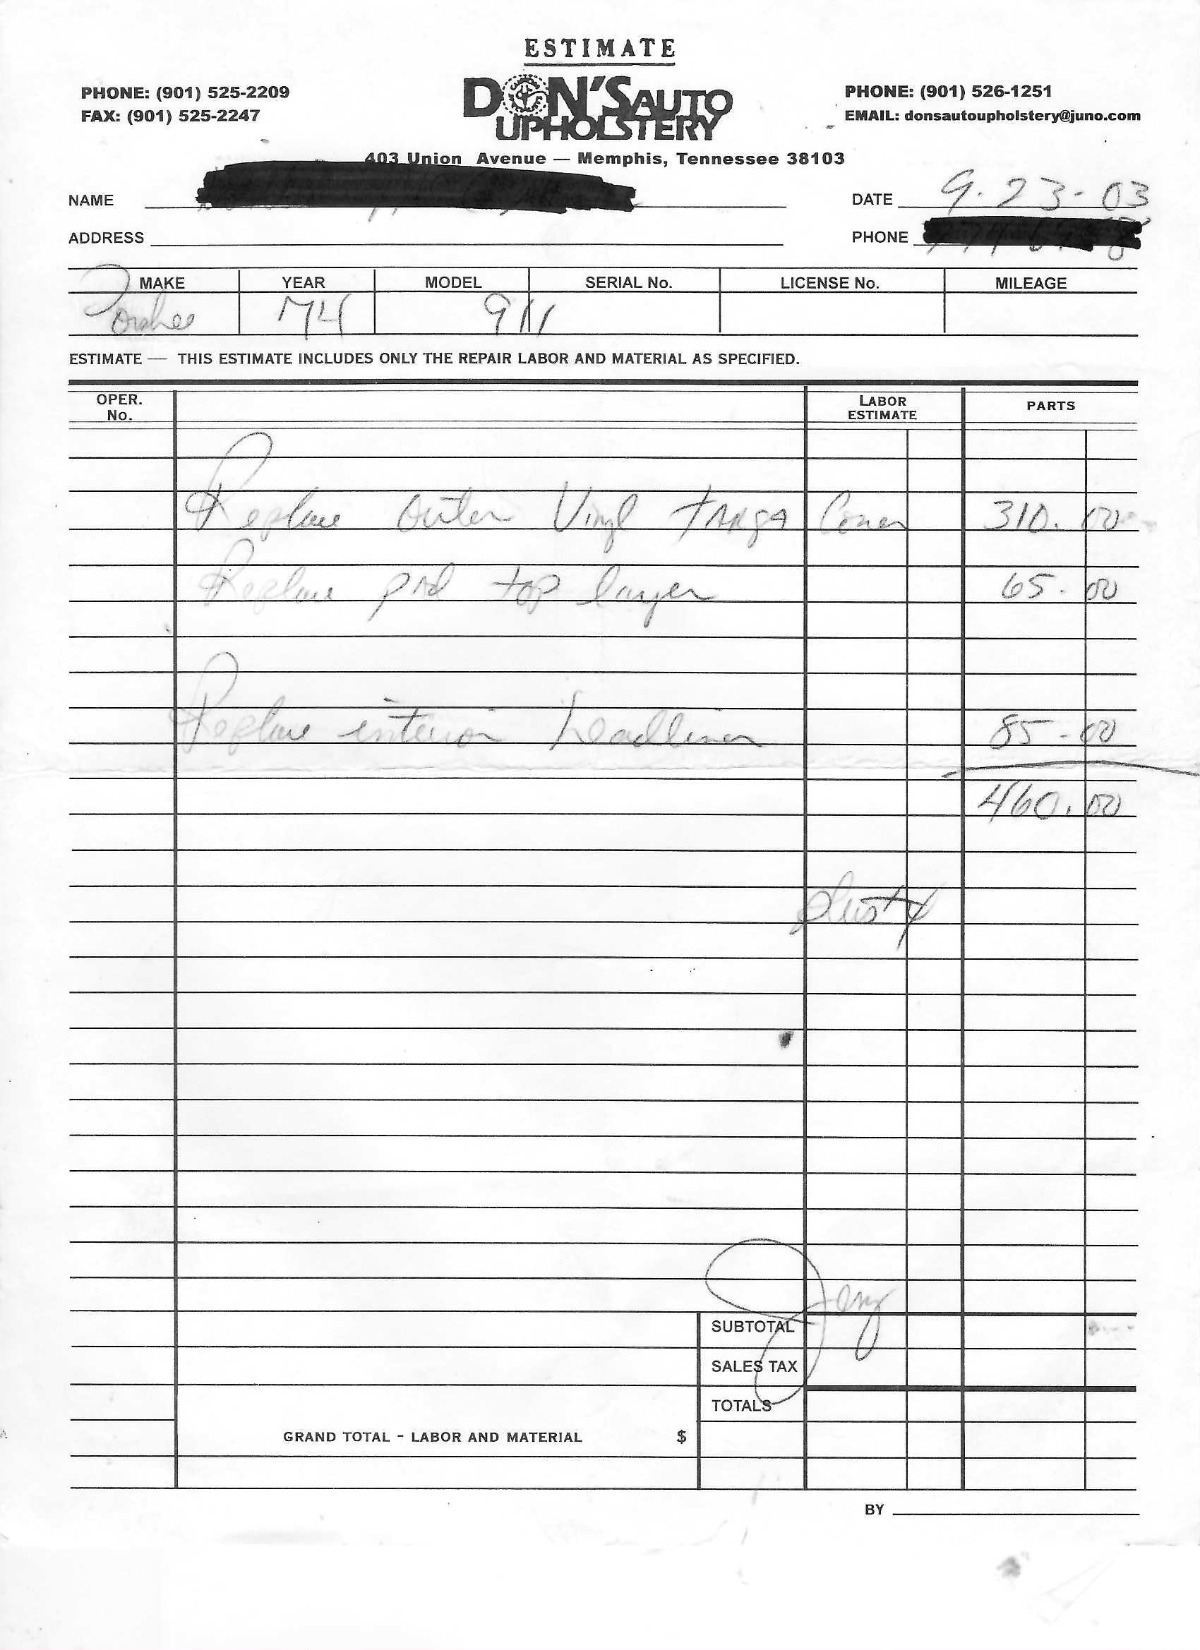 ESTIMATE
PHONE: (901) 525-2209
FAX: (901) 525-2247
DON'S AUTO
UPHOLSTERY
PHONE: (901) 526-1251
EMAIL: donsautoupholstery@juno.com
403 Union Avenue — Memphis, Tennessee 38103
NAME
DATE 9-23-03
ADDRESS
PHONE
MAKE YEAR MODEL SERIAL No. LICENSE No. MILEAGE
Porshee 74 911
ESTIMATE — THIS ESTIMATE INCLUDES ONLY THE REPAIR LABOR AND MATERIAL AS SPECIFIED.
OPER. No. LABOR ESTIMATE PARTS
Replace outer Vinyl TARGA Cover 310.00
Replace pad top layer 65.00
Replace interior headliner 85-00
460.00
Jerry
SUBTOTAL
SALES TAX
TOTALS
GRAND TOTAL - LABOR AND MATERIAL $
BY